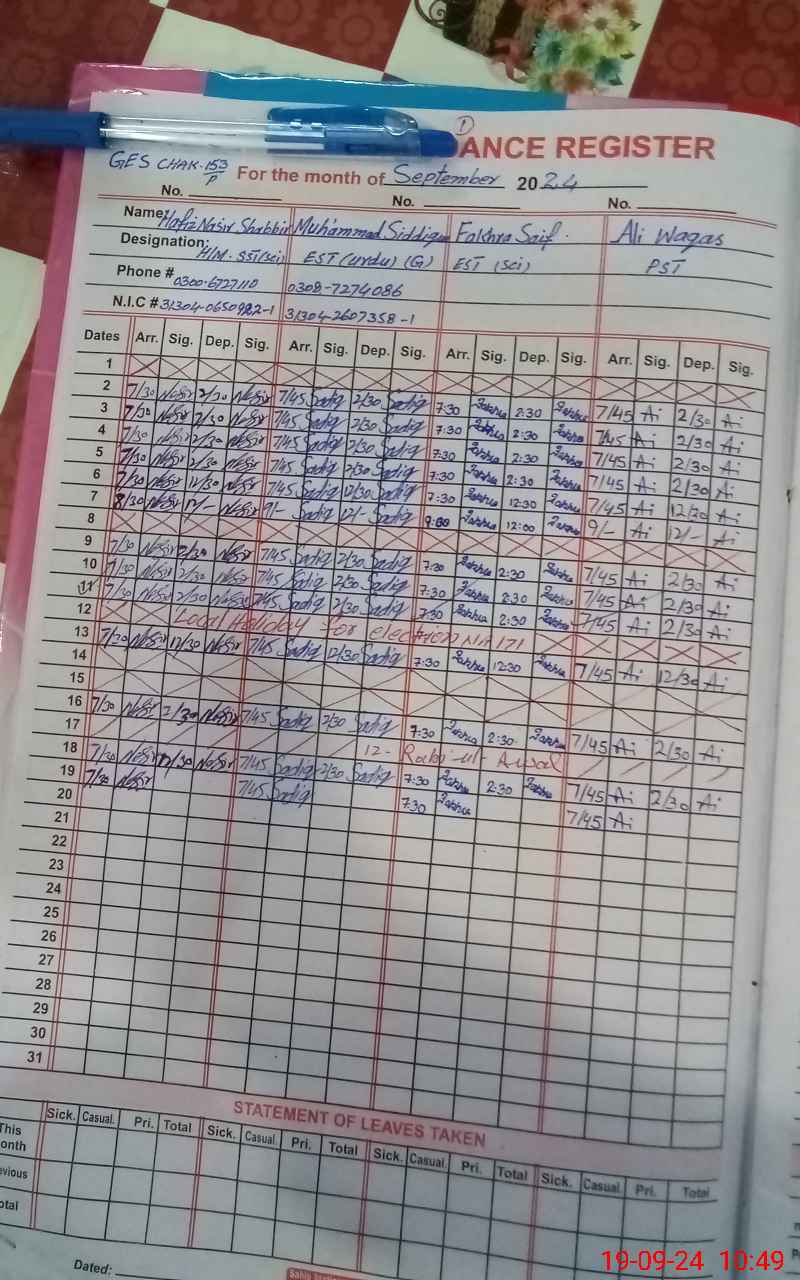 DANCE REGISTER
GES CHAK. 153/P
For the month of September 2024
No. No. No.
Name: Hafiz Nasir Shabbir Muhammad Siddique Fakhra Saif. Ali Waqas
Designation: H/M. SST(sci) EST (urdu) (G) EST (sci) PST
Phone # 0300-6727110 0308-7274086
N.I.C # 31304-0650922-1 31304-2607358-1
Dates Arr. Sig. Dep. Sig. Arr. Sig. Dep. Sig. Arr. Sig. Dep. Sig. Arr. Sig. Dep. Sig.
1
2 7/30 Nasir 2/30 Nasir 7/45 Sadiq 2/30 Sadiq 7:30 Fakhra 2:30 Fakhra 7/45 Ai 2/30 Ai
3 7/30 Nasir 2/30 Nasir 7/45 Sadiq 2/30 Sadiq 7:30 Fakhra 2:30 Fakhra 7/45 Ai 2/30 Ai
4 7/30 Nasir 2/30 Nasir 7/45 Sadiq 2/30 Sadiq 7:30 Fakhra 2:30 Fakhra 7/45 Ai 2/30 Ai
5 7/30 Nasir 2/30 Nasir 7/45 Sadiq 2/30 Sadiq 7:30 Fakhra 2:30 Fakhra 7/45 Ai 2/30 Ai
6 7/30 Nasir 12/30 Nasir 7/45 Sadiq 12/30 Sadiq 7:30 Fakhra 12:30 Fakhra 7/45 Ai 12/30 Ai
7 8/30 Nasir 12/- Nasir 9/- Sadiq 12/- Sadiq 9:00 Fakhra 12:00 Fakhra 9/- Ai 12/- Ai
8
9 7/30 Nasir 2/30 Nasir 7/45 Sadiq 2/30 Sadiq 7:30 Fakhra 2:30 Fakhra 7/45 Ai 2/30 Ai
10 7/30 Nasir 2/30 Nasir 7/45 Sadiq 2/30 Sadiq 7:30 Fakhra 2:30 Fakhra 7/45 Ai 2/30 Ai
11 7/30 Nasir 2/30 Nasir 7/45 Sadiq 2/30 Sadiq 7:30 Fakhra 2:30 Fakhra 7/45 Ai 2/30 Ai
12 Local Holiday for election NA 171
13 7/30 Nasir 12/30 Nasir 7/45 Sadiq 12/30 Sadiq 7:30 Fakhra 12:30 Fakhra 7/45 Ai 12/30 Ai
14
15
16 7/30 Nasir 2/30 Nasir 7/45 Sadiq 2/30 Sadiq 7:30 Fakhra 2:30 Fakhra 7/45 Ai 2/30 Ai
17 12- Rabi-ul-Awal
18 7/30 Nasir 12/30 Nasir 7/45 Sadiq 2/30 Sadiq 7:30 Fakhra 2:30 Fakhra 7/45 Ai 2/30 Ai
19 7/30 Nasir 7/45 Sadiq 7:30 Fakhra 7/45 Ai
20
21
22
23
24
25
26
27
28
29
30
31
STATEMENT OF LEAVES TAKEN
Sick. Casual. Pri. Total Sick. Casual. Pri. Total Sick. Casual. Pri. Total Sick. Casual. Pri. Total
This
onth
evious
otal
Dated:
19-09-24 10:49